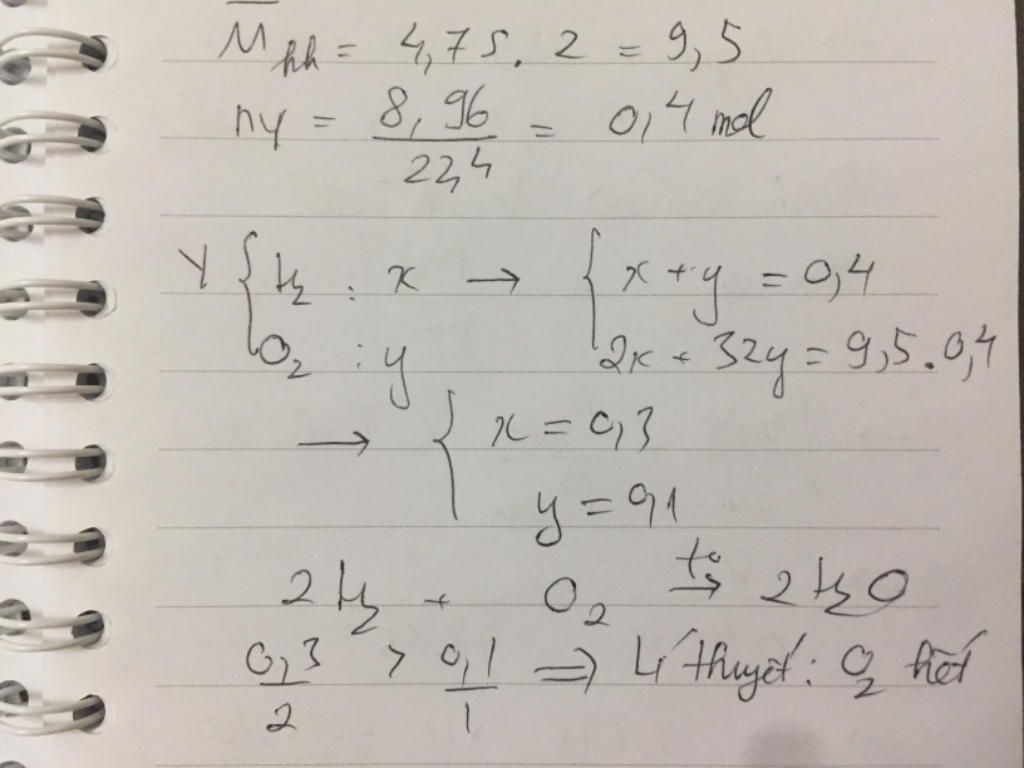 M̅hh = 4,75 . 2 = 9,5
nY = 8,96 / 22,4 = 0,4 mol
Y { H2 : x → { x + y = 0,4
O2 : y 2x + 32y = 9,5 . 0,4
→ { x = 0,3
y = 0,1
2H2 + O2 t° → 2H2O
0,3 / 2 > 0,1 / 1 ⇒ Lí thuyết : O2 hết